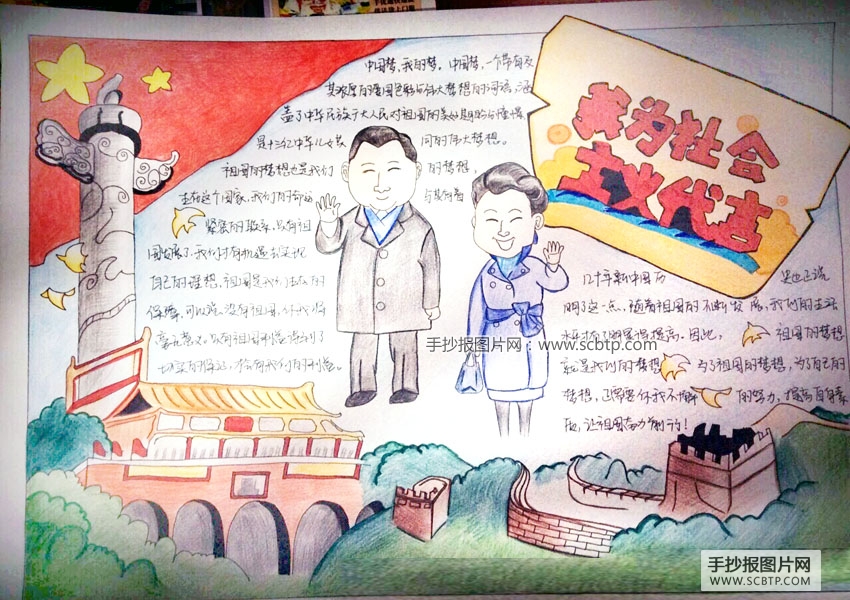 中国梦,我的梦。中国梦,一个带有及
其浓厚的爱国色彩的伟大梦想的词语,涵
盖了中华民族广大人民对祖国的美好期盼的憧憬
是十三亿中华儿女共 同的伟大梦想。
祖国的梦想也是我们 的梦想,
生在这个国家,我们的命运 与其有着
紧紧的联系,只有祖
国发展了,我们才有机遇去实现
自己的理想,祖国是我们生存的
保障,可以说,没有祖国,
只有祖国利益得到了
切实的保证,才会有我们的利益。
我为社会
主义代言
几十年新中国历 史也证
明了这一点,随着祖国的不断发展,我们的生活
水平有了明显得提高。因此, 祖国的梦想
就是我们的梦想 为了祖国的梦想,为了自己的
梦想, 的努力,提高自身素
质,让祖国奋力前行的!
手抄报图片网:www.scbtp.com
手抄报图片网
WWW.SCBTP.COM